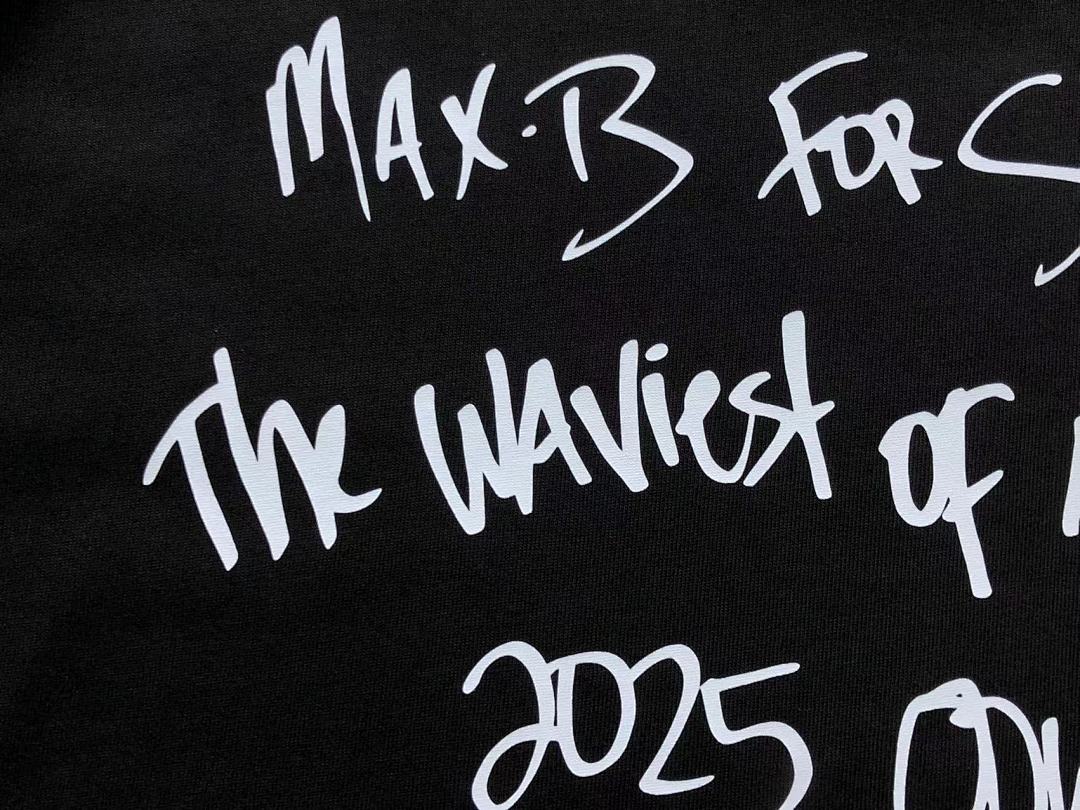 MAX·B FOR S
The WAViest OF
2025